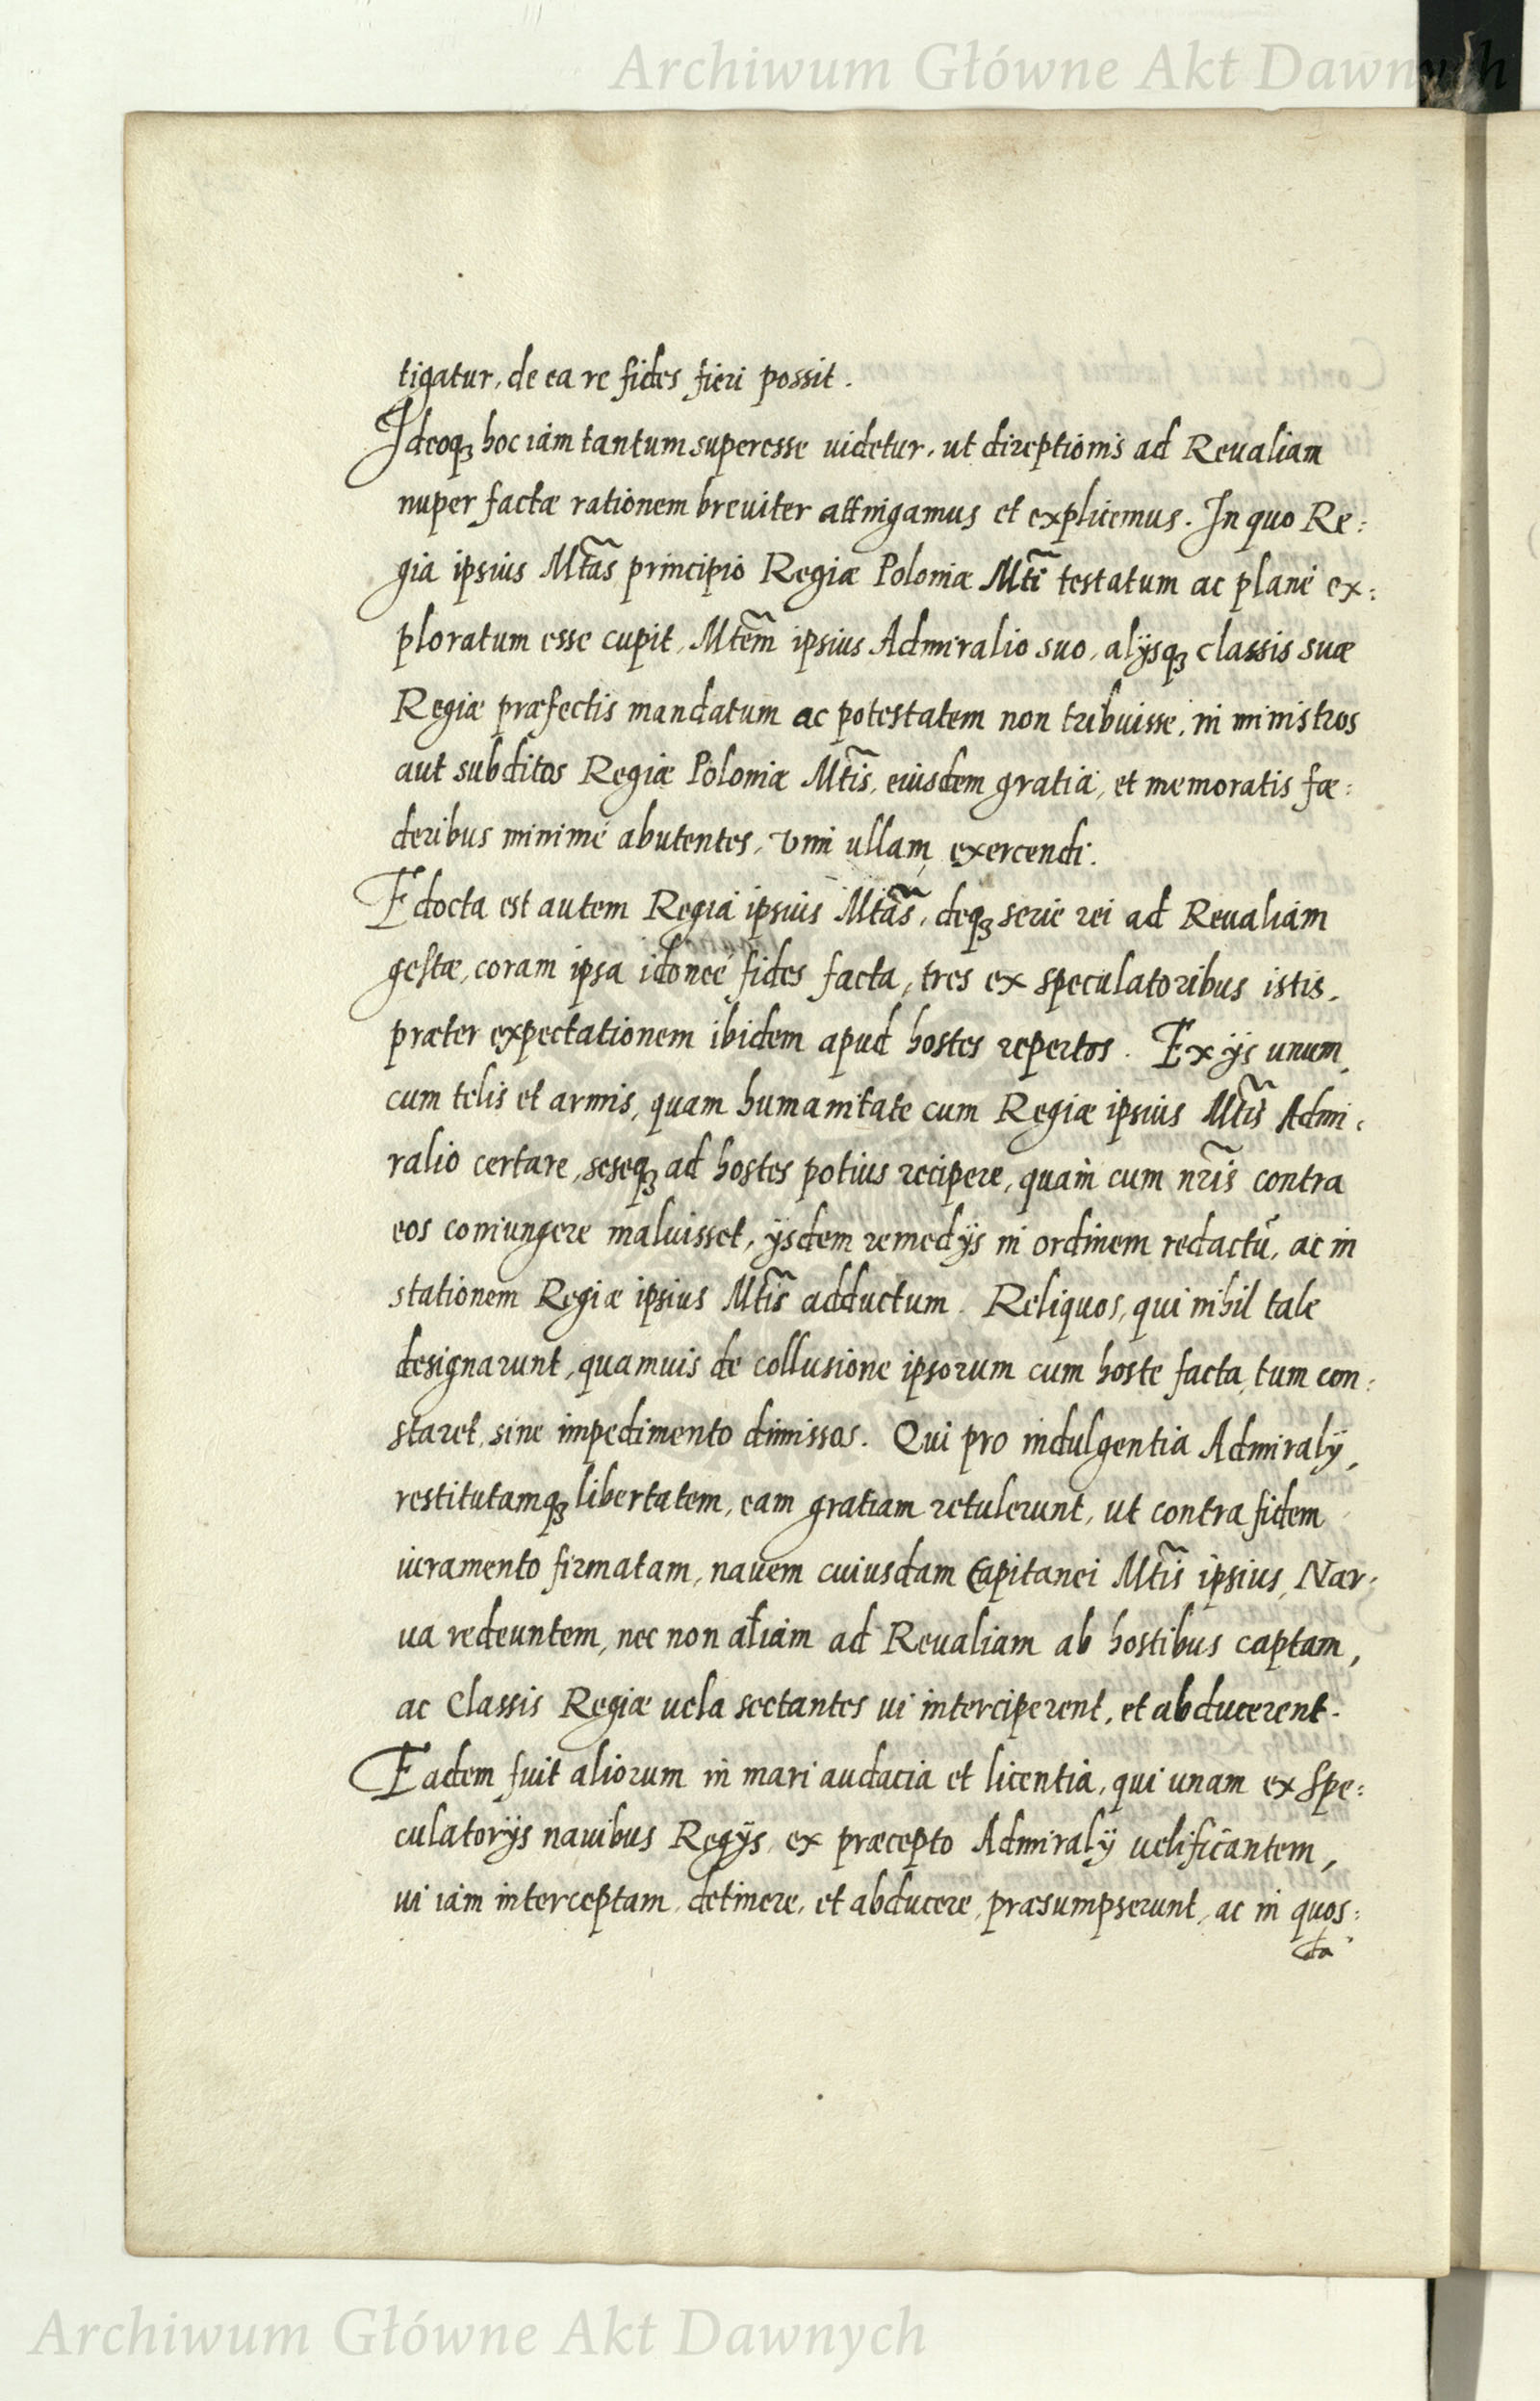 Archiwum Główne Akt Dawnych
tigatur, de ea re fides fieri possit.
Ideoqꝫ hoc iam tantum superesse uidetur, ut direptionis ad Reualiam
nuper factæ rationem breuiter attingamus et explicemus. In quo Re:
gia ipsius Mtas̃ principio Regiæ Poloniæ Mtĩ testatum ac planè ex:
ploratum esse cupit, Mtem̃ ipsius Admiralio suo, alijsqꝫ classis suæ
Regiæ præfectis mandatum ac potestatem non tribuisse, in ministros
aut subditos Regiæ Poloniæ Mtis̃, eiusdem gratia, et memoratis fæ:
deribus minimè abutentes, vim ullam exercendi.
Edocta est autem Regia ipsius Mtas̃, deqꝫ serie rei ad Reualiam
gestæ, coram ipsa idoneè fides facta, tres ex speculatoribus istis,
præter expectationem ibidem apud hostes repertos. Ex ijs unum,
cum telis et armis, quam humanitate cum Regiæ ipsius Mtis̃ Admi:
ralio certare, seseqꝫ ad hostes potius recipere, quàm cum nr̃is contra
eos coniungere maluisset, ijsdem remedijs in ordinem redactū, ac in
stationem Regiæ ipsius Mtis̃ adductum. Reliquos, qui nihil tale
designarunt, quamuis de collusione ipsorum cum hoste facta, tum con:
staret, sine impedimento dimissos. Qui pro indulgentia Admiralij,
restitutamqꝫ libertatem, eam gratiam retulerunt, ut contra fidem
iuramento firmatam, nauem cuiusdam Capitanei Mtis̃ ipsius, Nar:
ua redeuntem, nec non aliam ad Reualiam ab hostibus captam,
ac Classis Regiæ uela sectantes ui interciperent, et abducerent.
Eadem fuit aliorum in mari audacia et licentia, qui unam ex Spe:
culatorijs nauibus Regijs, ex præcepto Admiralij uelificantem,
ui iam interceptam, detinere, et abducere, præsumpserunt, ac in quos:
da
Archiwum Główne Akt Dawnych